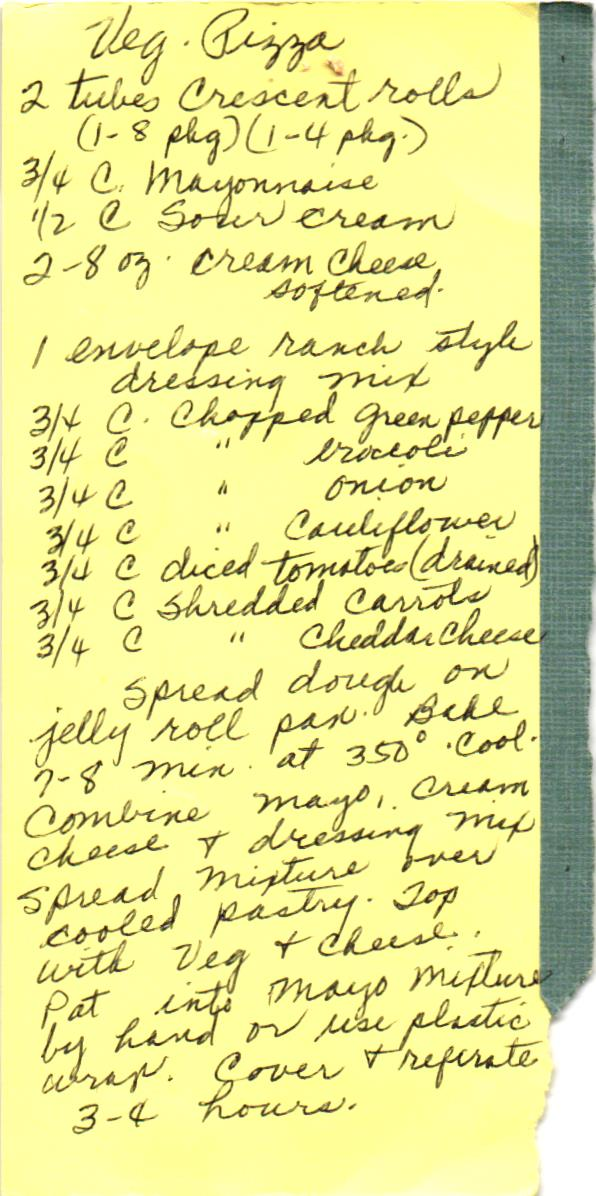 Veg. Pizza
2 tubes Crescent rolls
(1-8 pkg)(1-4 pkg.)
3/4 C. Mayonnaise
1/2 C Sour cream
2-8 oz. cream cheese
softened.
1 envelope ranch style
dressing mix
3/4 C. Chopped green pepper
3/4 C " broccoli
3/4 C " onion
3/4 C " Cauliflower
3/4 C diced tomatoes (drained)
3/4 C Shredded Carrots
3/4 C " Cheddar Cheese
Spread dough on
jelly roll pan. Bake
7-8 min. at 350°. Cool.
Combine mayo, cream
cheese + dressing mix
Spread mixture over
cooled pastry. Top
with Veg + cheese.
Pat into Mayo Mixture
by hand or use plastic
wrap. Cover + refirate
3-4 hours.